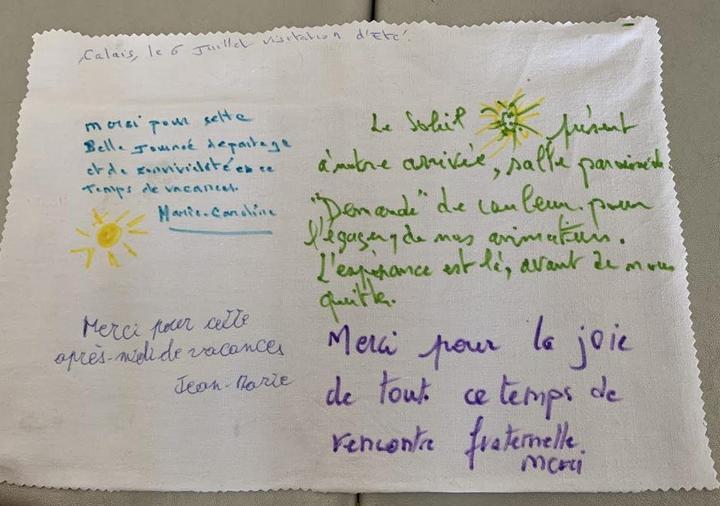 Calais, le 6 Juillet visitation d'Eté.
merci pour sette
Belle Journeé departage
et de convivialeté en ce
Temps de vacances.
Marie-Caroline
Merci pour cette
après-midi de vacances
Jean-Marie
Le Soleil présent
à notre arrivée, salle
"Demande" de couleur pour
de nos animateurs.
L'espérance est là, avant de nous
quitter.
Merci pour la joie
de tout ce temps de
rencontre fraternelle
merci